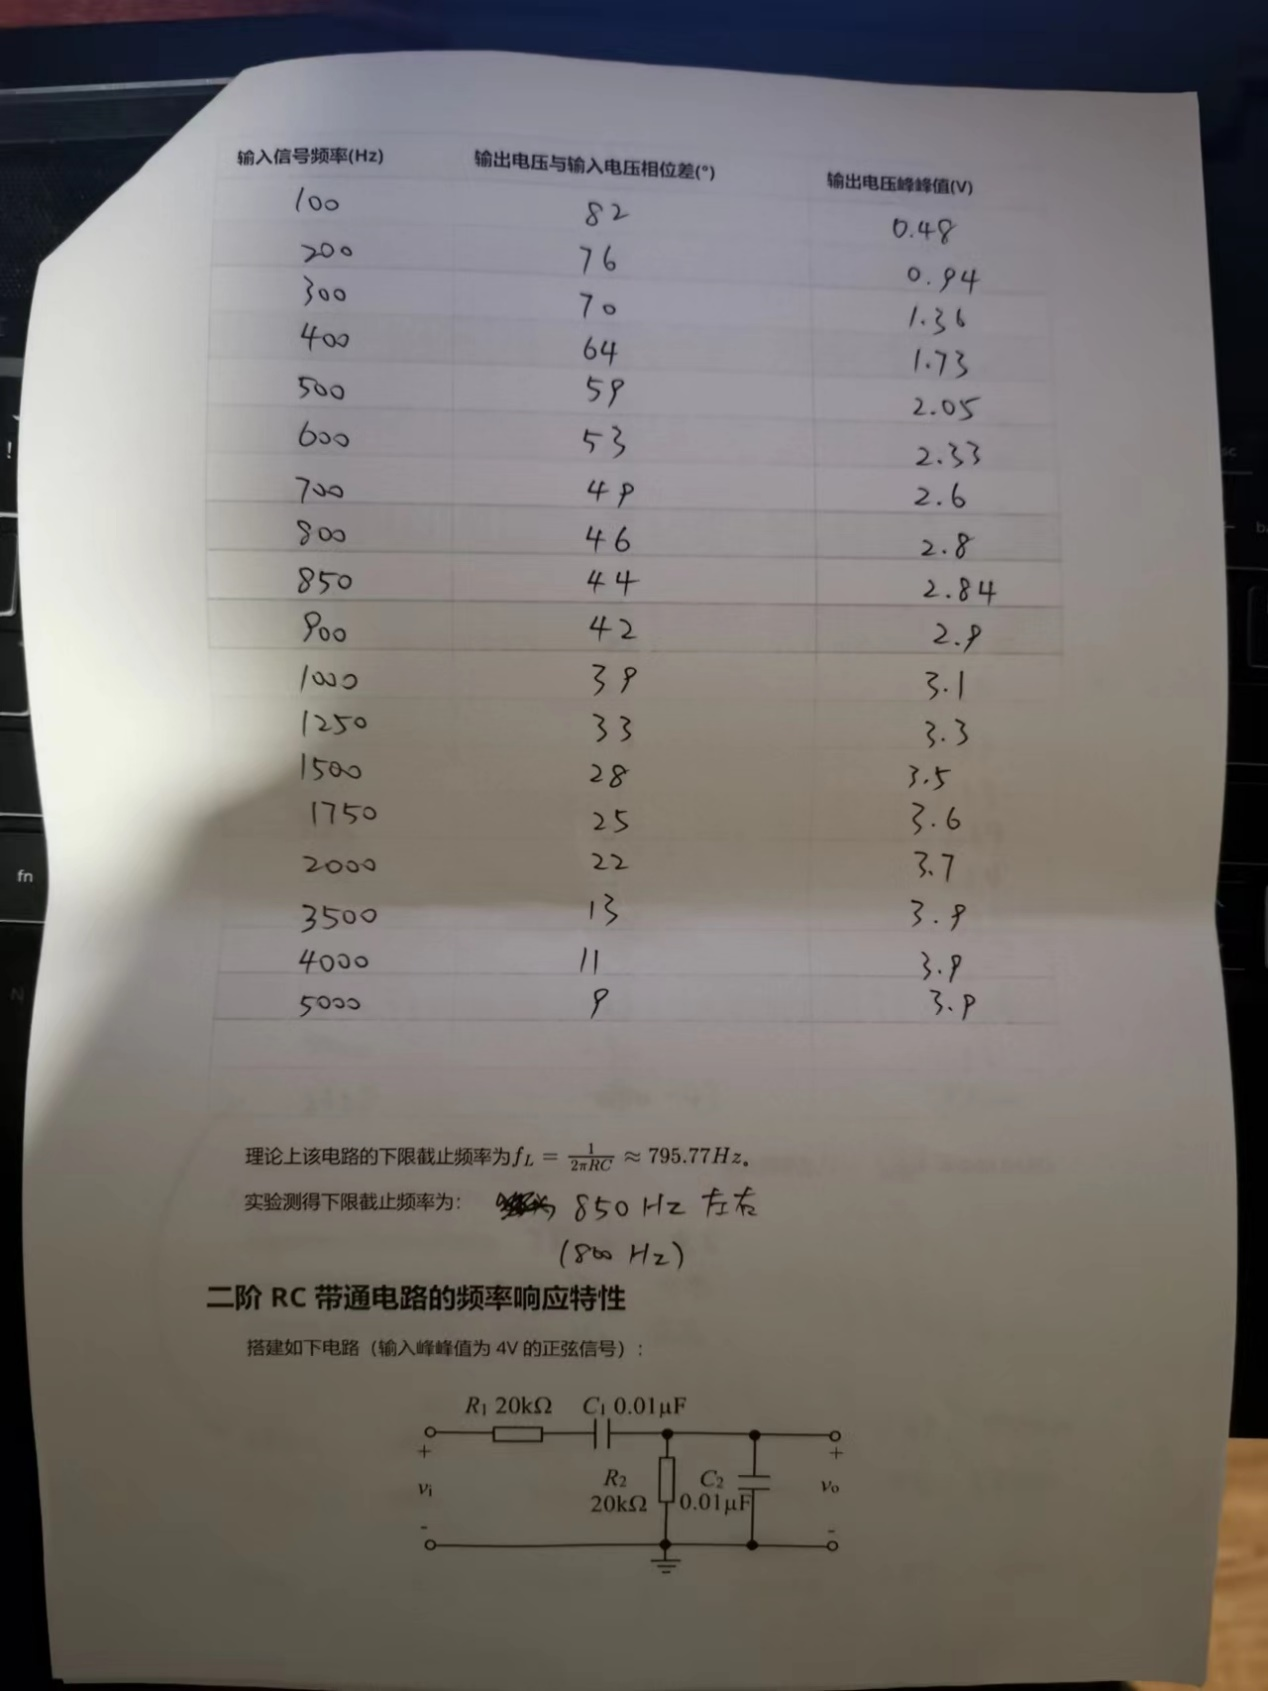 输入信号频率(Hz) 输出电压与输入电压相位差(°) 输出电压峰峰值(V)
100 82 0.48
200 76 0.94
300 70 1.36
400 64 1.73
500 59 2.05
600 53 2.33
700 49 2.6
800 46 2.8
850 44 2.84
900 42 2.9
1000 39 3.1
1250 33 3.3
1500 28 3.5
1750 25 3.6
2000 22 3.7
3500 13 3.9
4000 11 3.9
5000 9 3.9
理论上该电路的下限截止频率为f_L = 1/(2πRC) ≈ 795.77Hz。
实验测得下限截止频率为： 850 Hz 左右
(800 Hz)
二阶 RC 带通电路的频率响应特性
搭建如下电路（输入峰峰值为 4V 的正弦信号）:
R1 20kΩ C1 0.01μF
+ +
vi R2 C2 vo
20kΩ 0.01μF
- -
fn
!
N